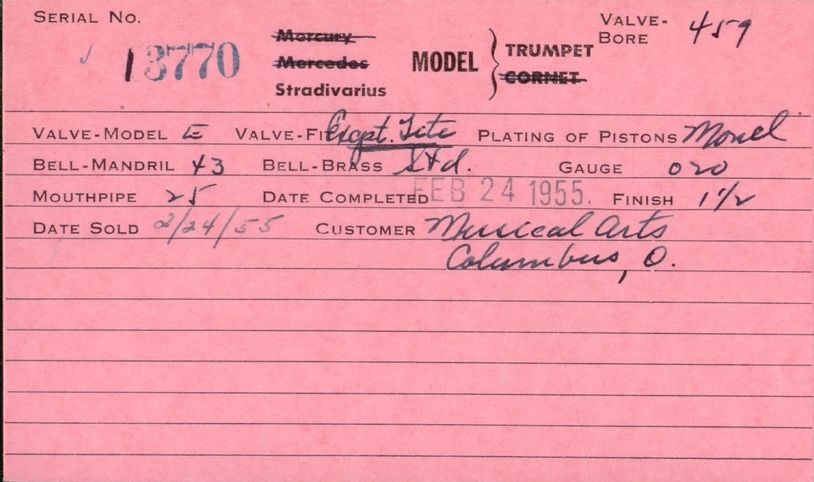 SERIAL NO. 13770 Mercury Mercedes Stradivarius MODEL TRUMPET CORNET VALVE-BORE 459
VALVE-MODEL E VALVE-FIT Exept. Tite PLATING OF PISTONS Monel
BELL-MANDRIL 43 BELL-BRASS Std. GAUGE 020
MOUTHPIPE 25 DATE COMPLETED FEB 24 1955. FINISH 1 1/2
DATE SOLD 2/24/55 CUSTOMER Musical Arts
Columbus, O.